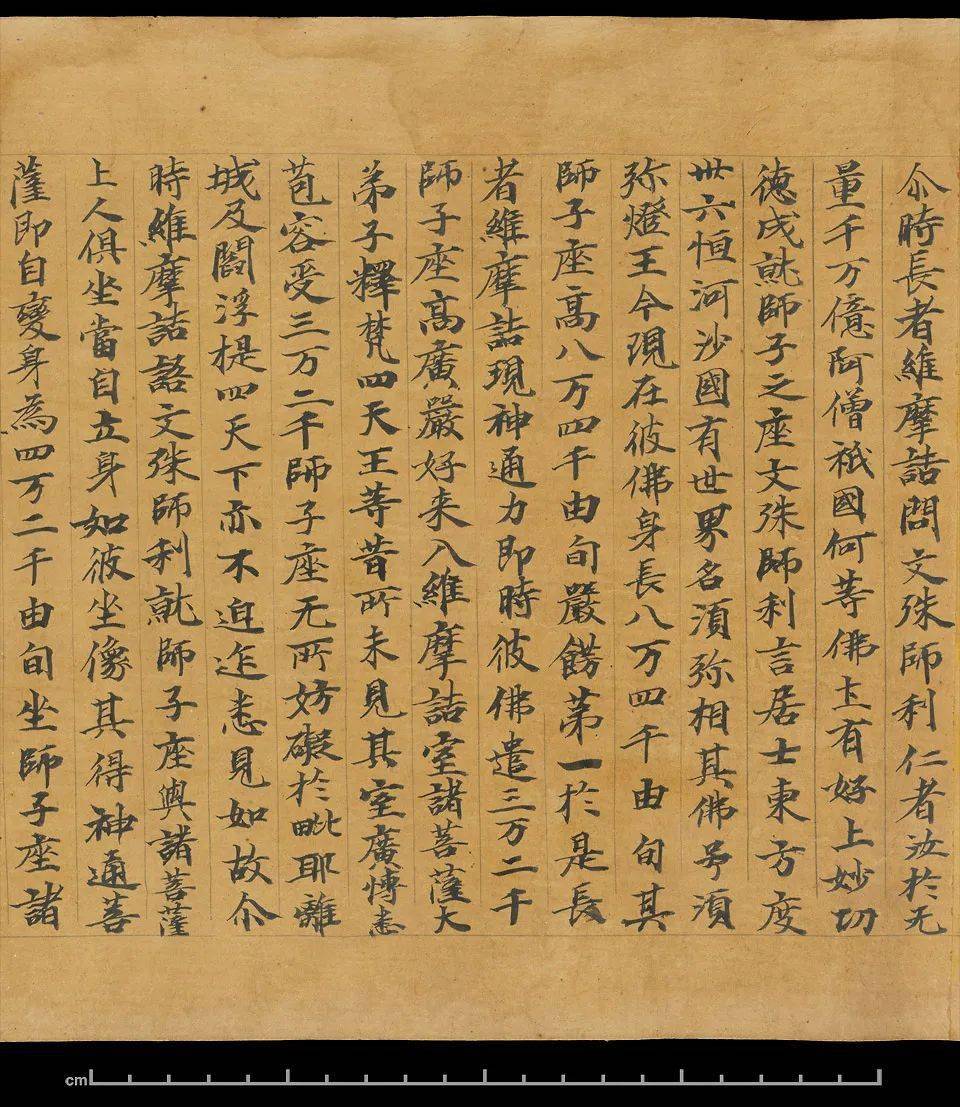 尒時長者維摩詰問文殊師利仁者汝於无
量千万億阿僧祇國何等佛土有好上妙切
德成就師子之座文殊師利言居士東方度
卅六恒河沙國有世界名須弥相其佛号須
弥燈王今現在彼佛身長八万四千由旬其
師子座高八万四千由旬嚴餝苐一於是長
者維摩詰現神通力即時彼佛遣三万二千
師子座高廣嚴好来入維摩詰室諸菩薩大
弟子釋梵四天王等昔所未見其室廣愽悉
苞容受三万二千師子座无所妨礙於毗耶離
城及閻浮提四天下亦不迫迮悉見如故尒
時維摩詰語文殊師利就師子座與諸菩薩
上人俱坐當自立身如彼坐像其得神通菩
薩即自變身為四万二千由旬坐師子座諸
cm